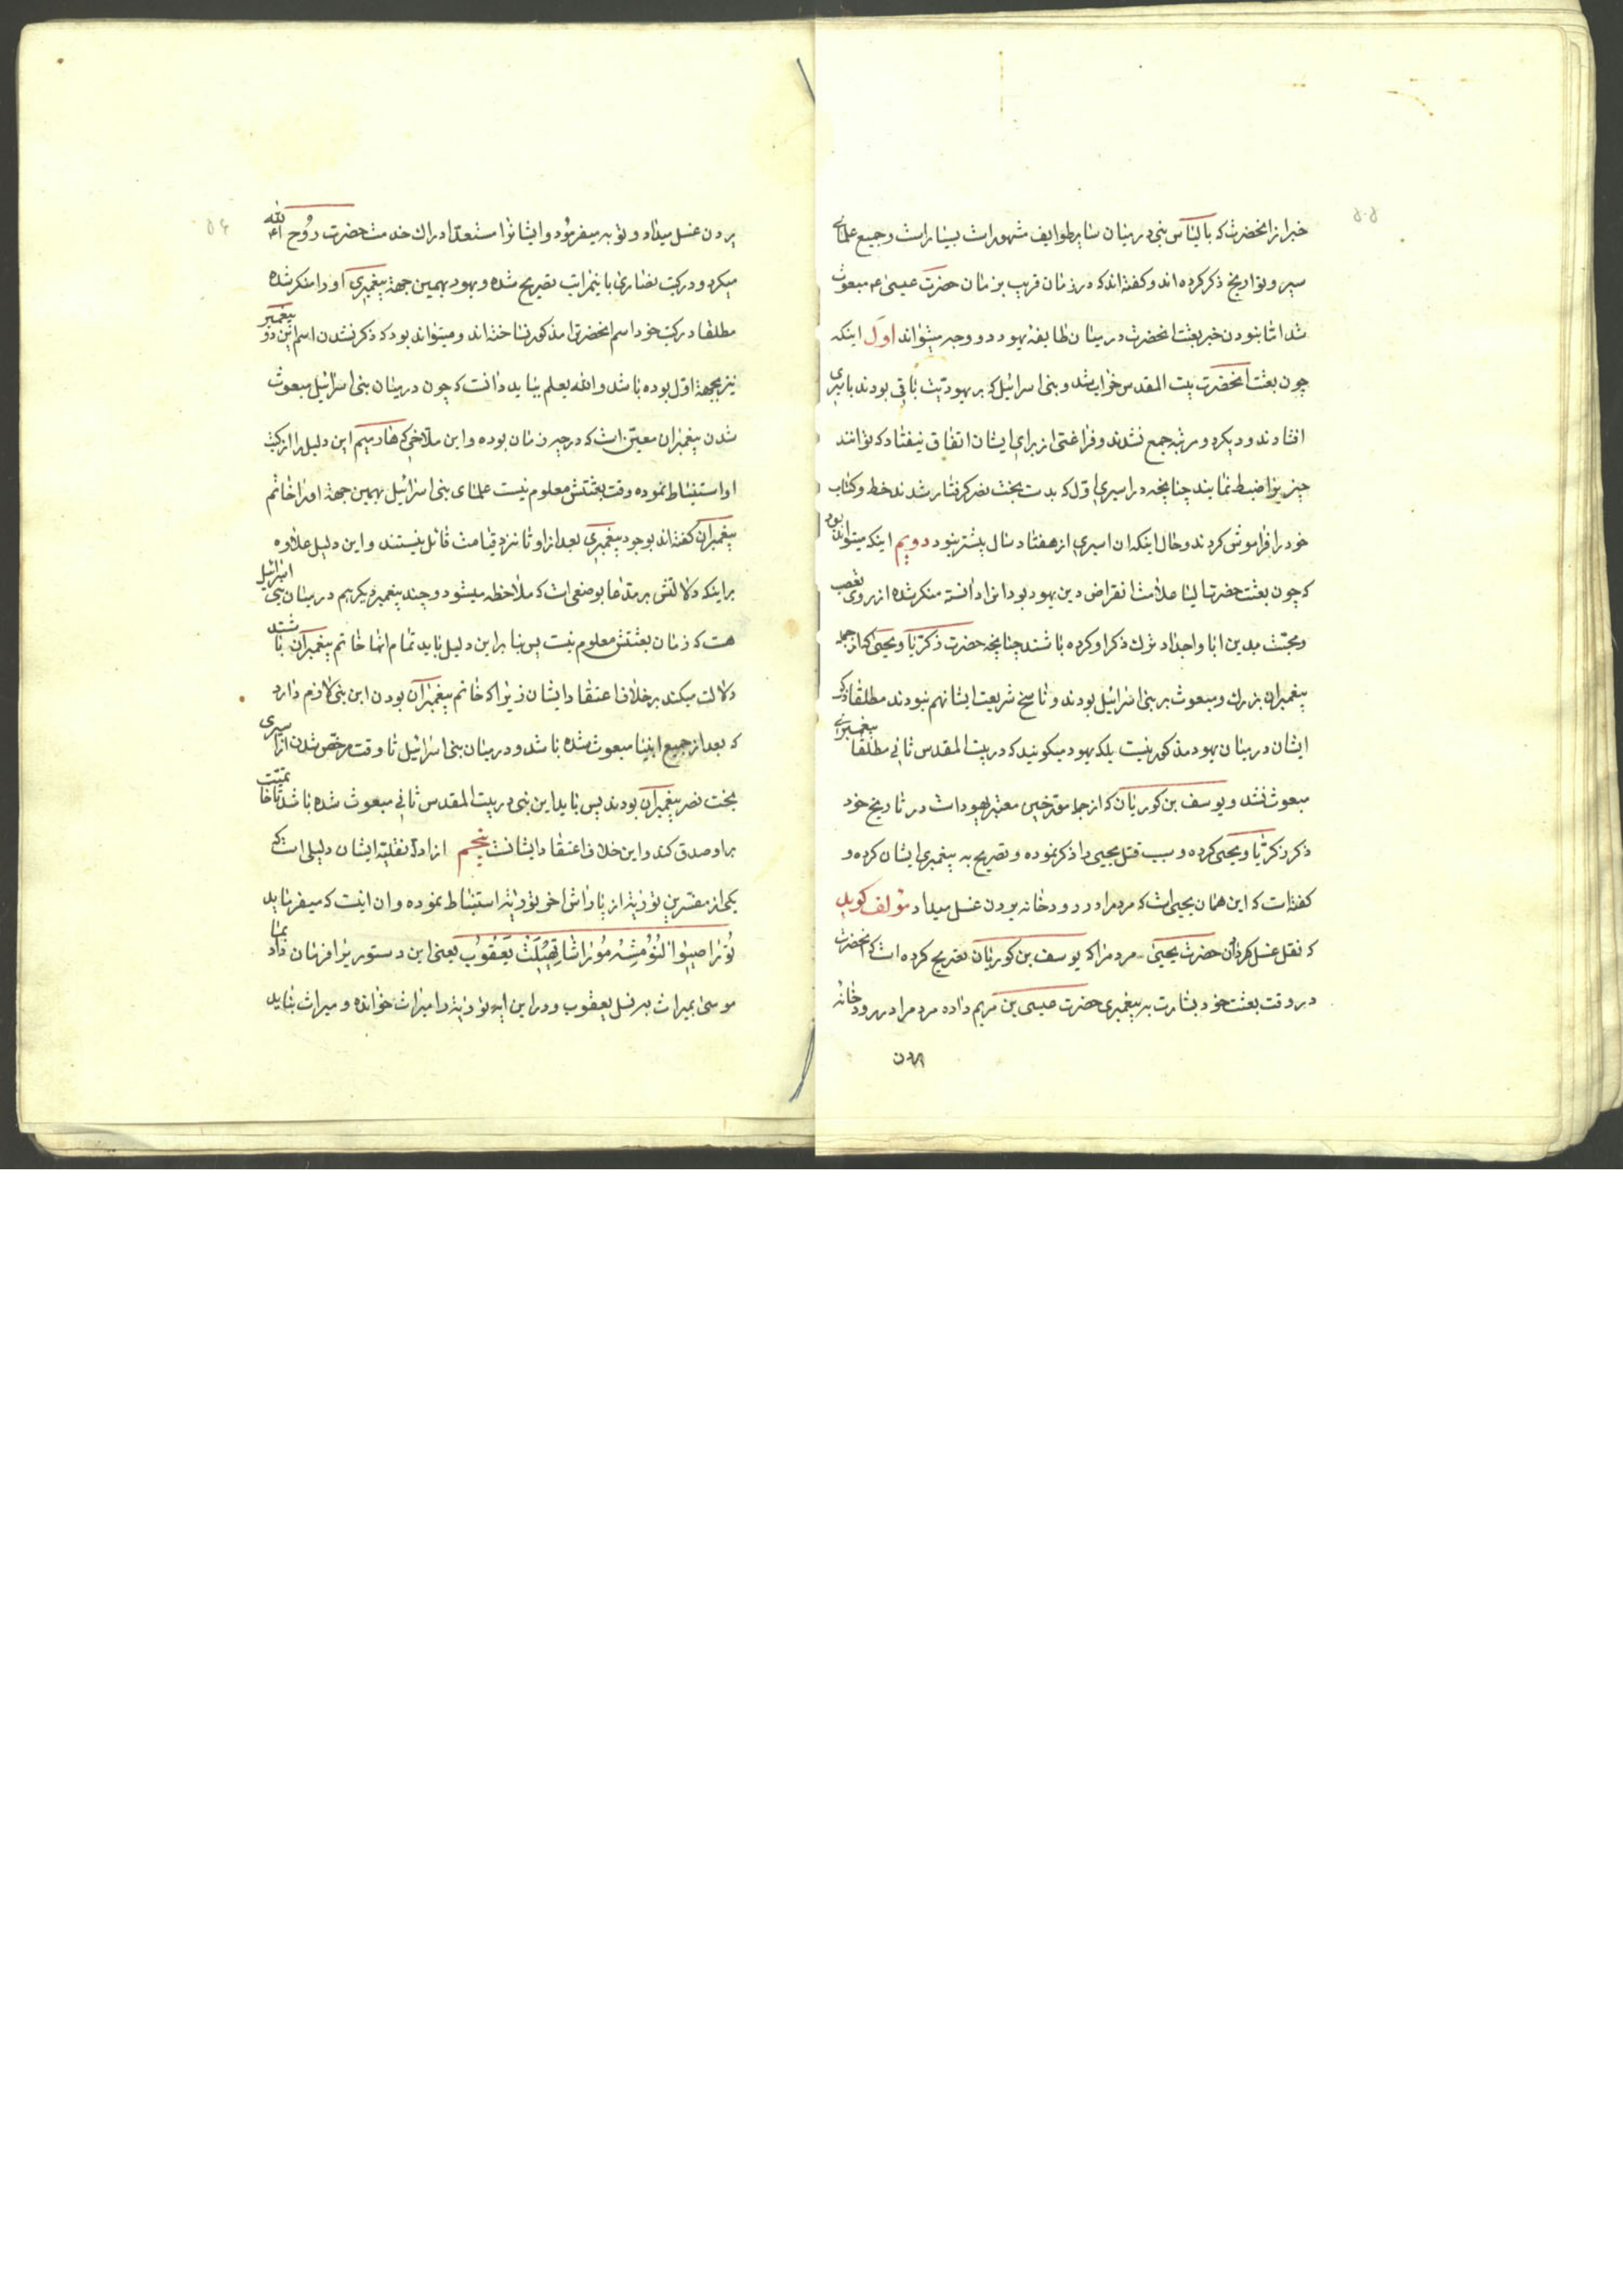 خبر از انحضرت که با لیاس نبی در میان سایر طوایف مشهور است بسیار است و جمیع علمای
سیر و تواریخ ذکر کرده اند و گفته اند که در زمان قریب بزمان حضرت عیسی ۴ مبعوث
شد اما نبودن خبر بعثت انحضرت در میان طایفه یهود دو وجه میتواند اول اینکه
چون بعثت انحضرت بیت المقدس خراب شد و بنی اسرائیل که بر یهودیت باقی بودند باسیری
افتادند و دیگر دو مرتبه جمع نشدند و فراغتی از برای ایشان اتفاق نیفتاد که توانند
چیزیرا ضبط نمایند چنانچه در اسیری اول که بدست بخت نصر گرفتار شدند خط و کتاب
خود را فراموش کردند و حال اینکه ان اسیری از هفتاد سال بیشتر نبود دویم اینکه میتواند بود
که چون بعثت حضرت الیا علامت انقراض دین یهود بود انرا دانسته منکر شده از روی تعصب
و محبت بدین ابا و اجداد ترک ذکر او کرده باشند چنانچه حضرت زکریا و یحیی که از جمله
پیغمبران بزرک و مبعوث بر بنی اسرائیل بودند و ناسخ شریعت ایشان هم نبودند مطلقا ذکر
ایشان در میان یهود مذکور نیست بلکه یهود میگویند که در بیت المقدس ثانی مطلقا پیغمبرای
مبعوث نشد و یوسف بن کوریان که از جمله مورخین معتبر یهود است در تاریخ خود
ذکر زکریا و یحیی کرده و سبب قتل یحیی را ذکر نموده و تصریح به پیغمبری ایشان کرده و
گفته است که این همان یحیی است که مردم را در رودخانه یردن غسل میداد مؤلف گوید
که نقل غسل کردن حضرت یحیی مردم را که یوسف بن کوریان تصریح کرده است که انحضرت
در وقت بعثت خود بشارت به پیغمبری حضرت عیسی بن مریم داده مردم را در رودخانه
یردن
یردن غسل میداد و توبه میفرمود و ایشانرا مستعد ادراک خدمت حضرت روح الله ۴
میکرد و در کتب نصاری باینمراتب تصریح شده و یهود بهمین جهة پیغمبری او را منکر شده
مطلقا در کتب خود اسم انحضرترا مذکور نساخته اند و میتواند بود که ذکر نشدن اسم این دو پیغمبر
نیز بجهة اول بوده باشد والله یعلم بباید دانست که چون در میان بنی اسرائیل مبعوث
شدن پیغمبران معین است که در چه زمان بوده و این ملاخی که ما در بیم این دلیل را از کتب
او استنباط نموده وقت بعثتش معلوم نیست علمای بنی اسرائیل بهمین جهة او را خاتم
پیغمبران گفته اند بوجود پیغمبری بعد از او تا نزد قیامت قائل نیستند و این دلیل علاوه
بر اینکه دلالتش بر مدعا بوضعی است که ملاحظه میشود و چند پیغمبر دیگر هم در میان بنی اسرائیل
هست که زمان بعثتش معلوم نیست پس بنا بر این دلیل باید تمام انها خاتم پیغمبران باشند
دلالت میکند بر خلاف اعتقاد ایشان زیرا که خاتم پیغمبران بودن این نبی لازم دارد
که بعد از جمیع انبیا مبعوث شده باشد و در میان بنی اسرائیل تا وقت مرخص شدن از اسیری
بخت نصر پیغمبران بودند پس باید این نبی در بیت المقدس ثانی مبعوث شده باشد تا خاتمیت
بر او صدق کند و این خلاف اعتقاد ایشانست پنجم از ادله نقلیه ایشان دلیلی است که
یکی از مفسرین توریة از پاراش اخر توریة استنباط نموده و ان اینست که میفرماید
تورا صیوا لنو مشه موراشا قهیلت یعقوب یعنی این دستوریرا فرمان داد بما
موسی بمیراث به نسل یعقوب و در این ایه توریة را میراث خوانده و میراث بباید